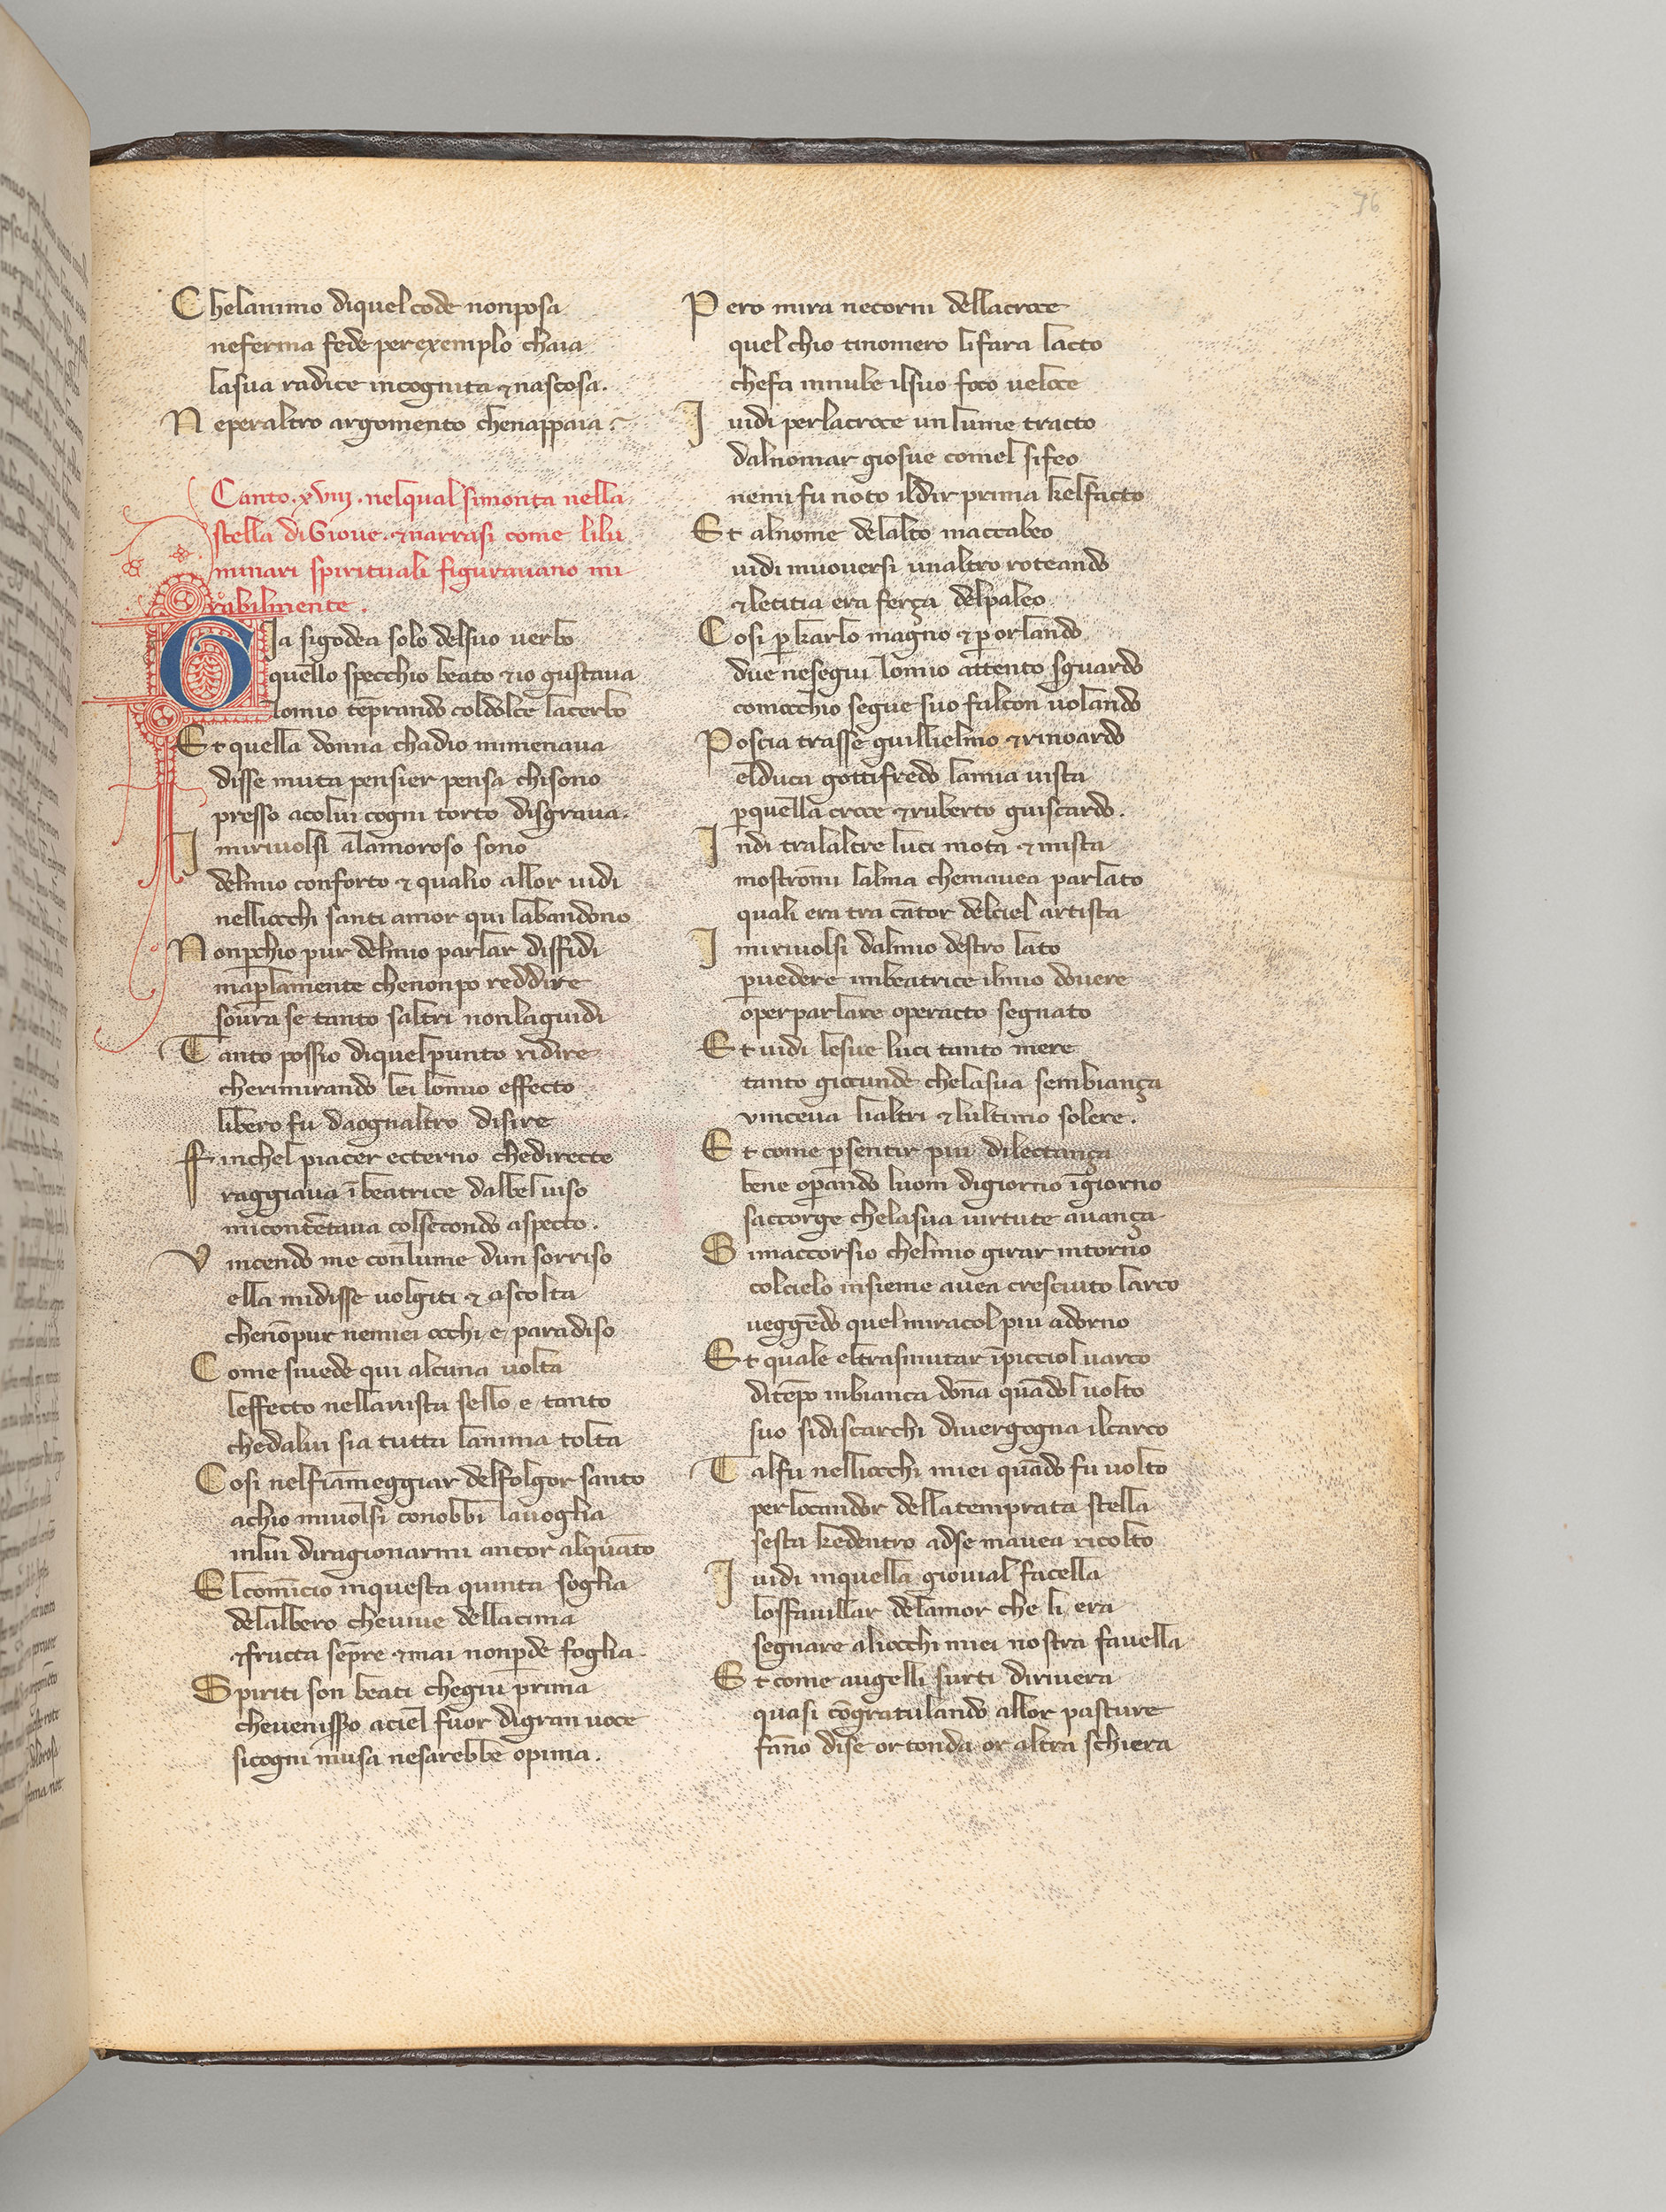 Chelanimo diquelcode nonposa
neferma fede perexemplo chaia
lasua radice incognita ⁊ nascosa.
Neperaltro argomento chenappaia.
Canto. xviij. nelqual simonta nella
stella di Gioue. ⁊ narrasi come lilu
minari spirituali figurauano mi
rabilmente.
Gia sigodea solo delsuo uerbo
quello specchio beato ⁊ io gustaua
lomio tēprando coldolce lacerbo
Et quella donna chadio mimenaua
disse muta pensier pensa chisono
presso acolui cogni torto disgraua.
I miriuolsi alamoroso sono
delmio conforto ⁊ qualio allor uidi
nelliocchi santi amor qui labandono
Nonp̄chio pur delmio parlar diffidi
map̄lamente chenonpo reddire
soura se tanto saltri nonlaguidi
Tanto possio diquelpunto ridire
cherimirando lei lomio effecto
libero fu daognaltro disire
Finchel piacer ecterno chedirecto
raggiaua ī beatrice dalbel uiso
micontētaua colsecondo aspecto.
Vincendo me conlume dun sorriso
ella midisse uolgiti ⁊ ascolta
chenōpur nemiei occhi e paradiso
Come siuede qui alcuna uolta
leffecto nellauista sello e tanto
chedalui sia tutta lanima tolta
Cosi nelfiāmeggiar delfolgor santo
achio miuolsi conobbi lauoglia
inlui diragionarmi ancor alquāto
Elcomīcio inquesta quinta soglia
delalbero cheuiue dellacima
⁊ fructa sēpre ⁊ mai nonp̄de foglia.
Spiriti son beati chegiu prima
cheuenisser aciel fuor digran uoce
sicogni musa nesarebbe opima.
Pero mira necorni dellacroce
quel chio tinomero lifara lacto
chefa innube ilsuo foco ueloce
I uidi perlacroce un lume tracto
dalnomar giosue comel sifeo
nemi fu noto ildir prima kelfacto
Et alnome delalto maccabeo
uidi muouersi unaltro roteando
⁊ letitia era ferça delpaleo
Cosi p̄ karlo magno ⁊ p̄ orlando
due nesegui lomio attento sguardo
comocchio segue suo falcon uolando
Poscia trasse guillielmo ⁊ rinoardo
elduca gottifredo lamia uista
p̄quella croce ⁊ ruberto guiscardo.
Indi tralaltre luci mota ⁊ mista
mostrōmi lalma chemauea parlato
quali era tra cātor delciel artista
I miriuolsi dalmio destro lato
p̄uedere inbeatrice ilmio douere
operparlare operacto segnato
Et uidi lesue luci tanto mere
tanto gioconde chelasua sembiança
uinceua lialtri ⁊ lultimo solere.
Et come p̄sentir piu dilectança
bene op̄ando luom digiorno īgiorno
saccorge chelasua uirtute auança
Simaccorsio chelmio girar intorno
colcielo insieme auea cresciuto larco
ueggēdo quel miracol piu adorno
Et quale eltrasmutar īpicciol uarco
ditēpo inbianca dōna quādol uolto
suo sidiscarchi diuergogna ilcarco
Talfu nelliocchi miei quādo fu uolto
perlocandor dellatemprata stella
sesta kedentro adse mauea ricolto
I uidi inquella giouial facella
losfauillar delamor che li era
segnare aliocchi miei nostra fauella
Et come augelli surti diriuera
quasi cōgratulando allor pasture
fāno dise or tonda or altra schiera